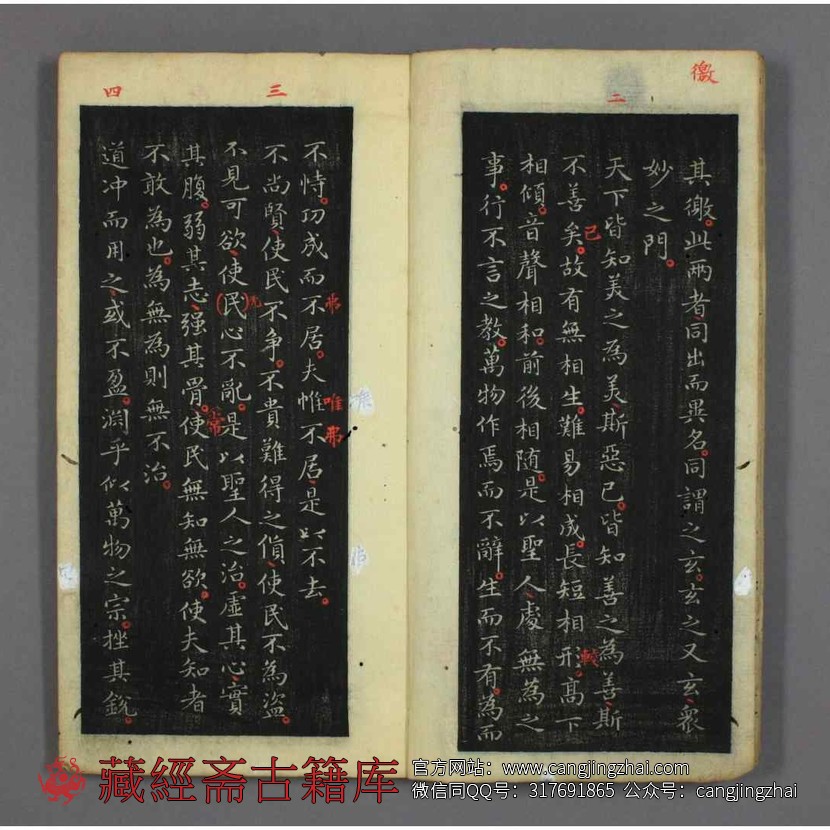 徼
二
其徼此兩者同出而異名同謂之玄玄之又玄衆
妙之門
天下皆知美之為美斯惡已皆知善之為善斯
不善矣故有無相生難易相成長短相形高下
已
較
相傾音聲相和前後相随是以聖人處無為之
事行不言之教萬物作焉而不辭生而不有為而
三
四
不恃功成而不居夫惟不居是以不去
弗
唯
弗
不尚賢使民不争不貴難得之貨使民不為盜
不見可欲使民心不亂是以聖人之治虛其心實
其腹弱其志强其骨使民無知無欲使夫知者
常
不敢為也為無為則無不治
道冲而用之或不盈淵乎似萬物之宗挫其銳
藏經斋古籍库
官方网站：www.cangjingzhai.com
微信同QQ号：317691865 公众号：cangjingzhai